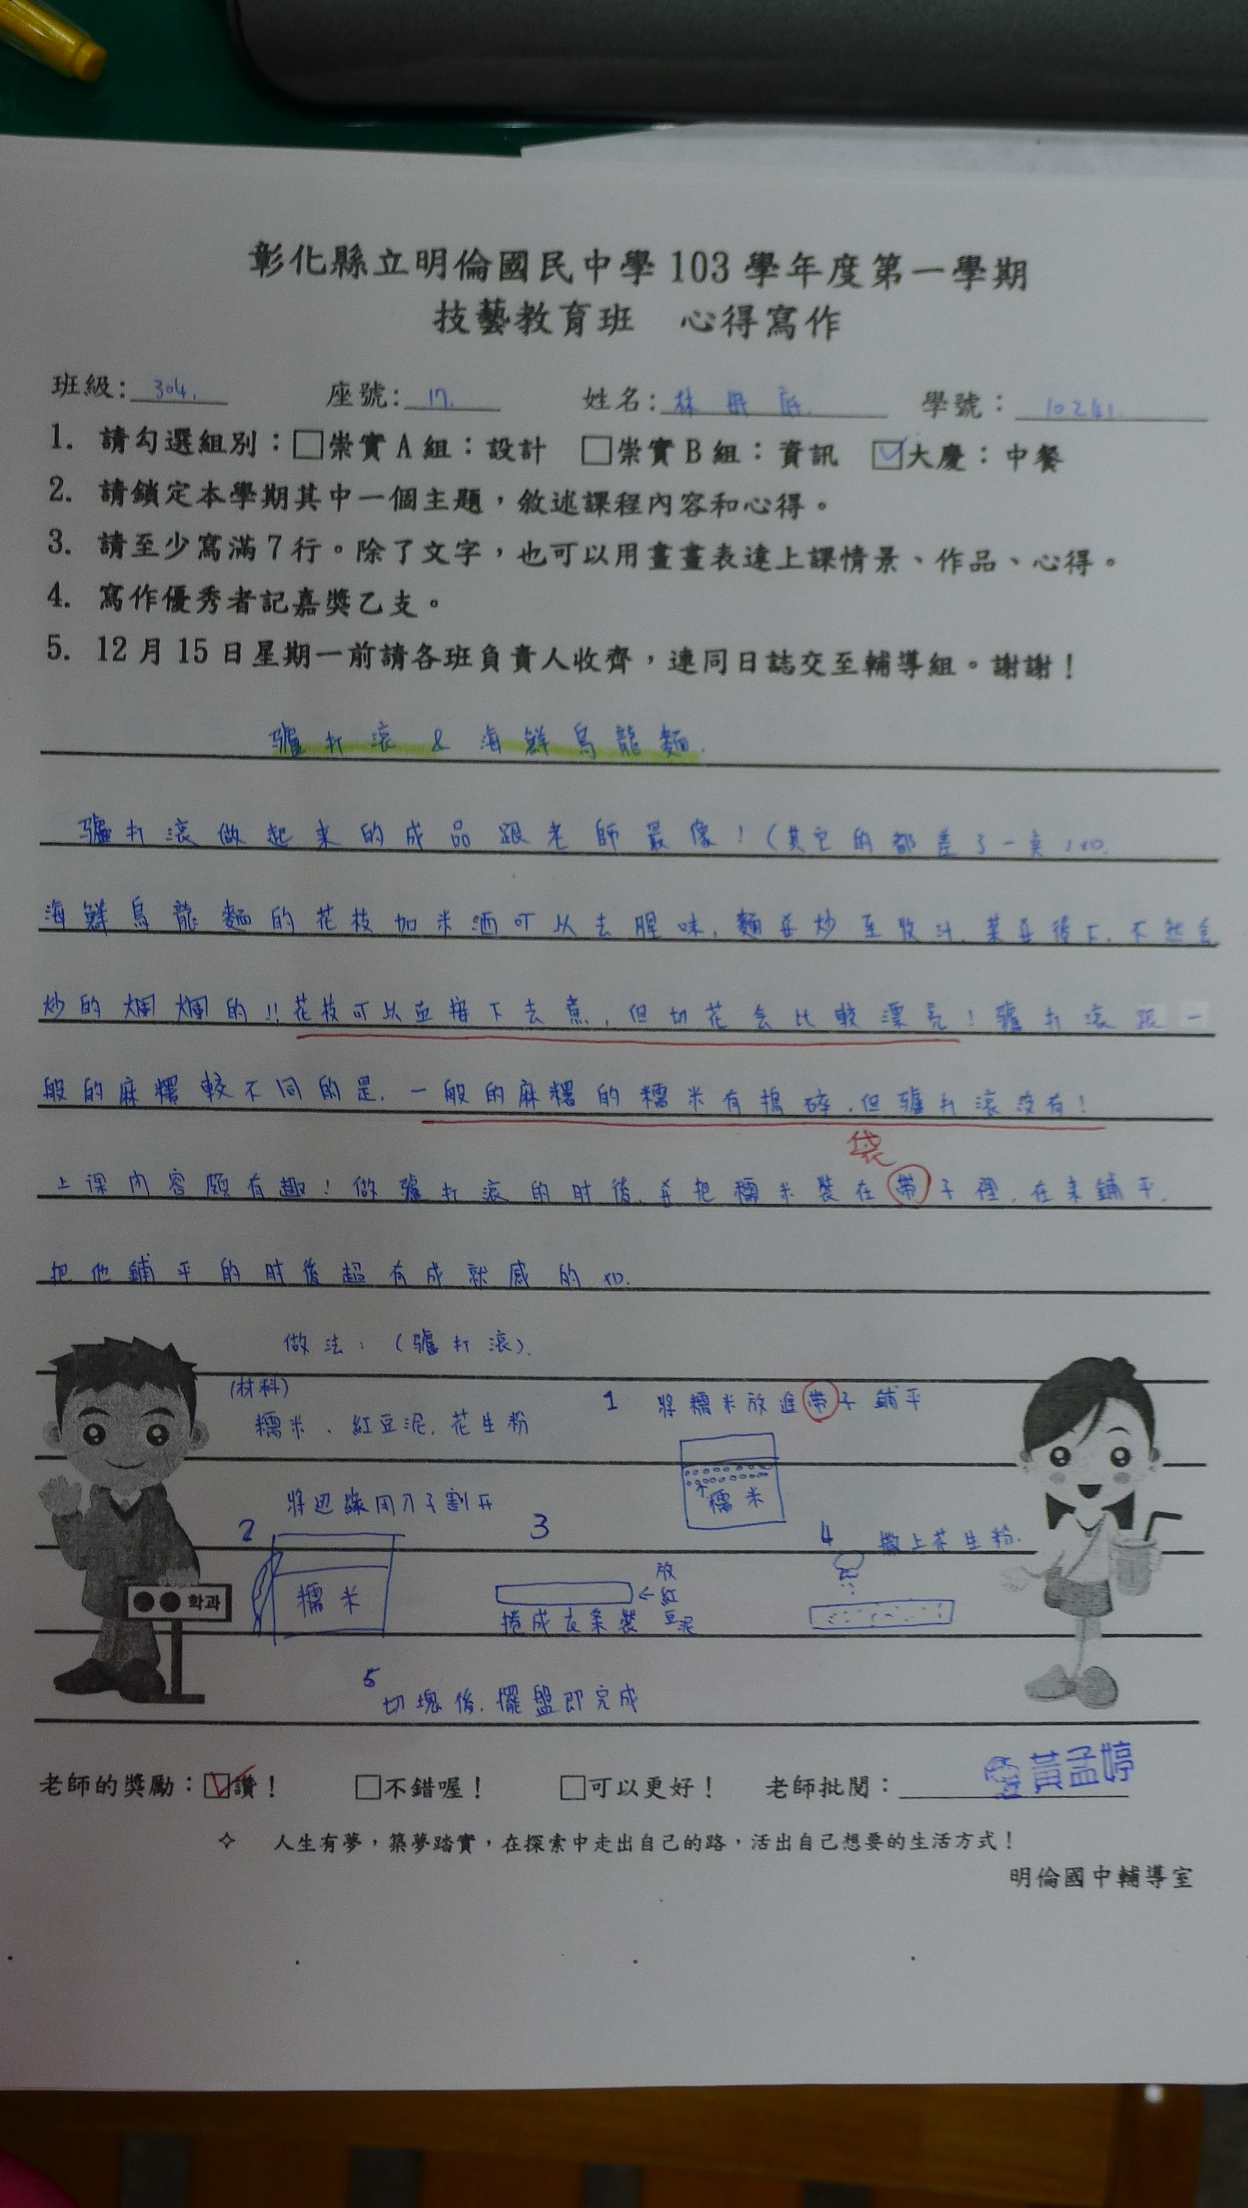 彰化縣立明倫國民中學 103 學年度第一學期
技藝教育班 心得寫作
班級: 304. 座號: 17. 姓名: 林 學號:
1. 請勾選組別：□崇實 A 組：設計 □崇實 B 組：資訊 ☑大慶：中餐
2. 請鎖定本學期其中一個主題，敘述課程內容和心得。
3. 請至少寫滿 7 行。除了文字，也可以用畫畫表達上課情景、作品、心得。
4. 寫作優秀者記嘉獎乙支。
5. 12 月 15 日星期一前請各班負責人收齊，連同日誌交至輔導組。謝謝！
驢打滾 & 海鮮烏龍麵.
驢打滾做起來的成品跟老師最像！(其它的都差了一點 XD.
海鮮烏龍麵的花枝加米酒可以去腥味, 麵要炒至收汁, 菜要後下, 不然會
炒的爛爛的!! 花枝可以直接下去煮, 但切花会比較漂亮！驢打滾跟一
般的麻糬較不同的是, 一般的麻糬的糯米有搗碎, 但驢打滾沒有！
袋
上课內容頗有趣！做驢打滾的时後, 要把糯米裝在帶子裡, 在來鋪平,
把他鋪平的时後超有成就感的 XD.
做法：(驢打滾).
(材料)
糯米、紅豆泥, 花生粉
1 將糯米放進帶子鋪平
糯米
將边緣用刀子割开
2
糯米
3
捲成 条裝
←放紅豆泥
4 撒上花生粉.
학과
5 切塊後, 擺盤即完成
老師的獎勵：☑讚！ □不錯喔！ □可以更好！ 老師批閱：黃孟婷
✧ 人生有夢，築夢踏實，在探索中走出自己的路，活出自己想要的生活方式！
明倫國中輔導室